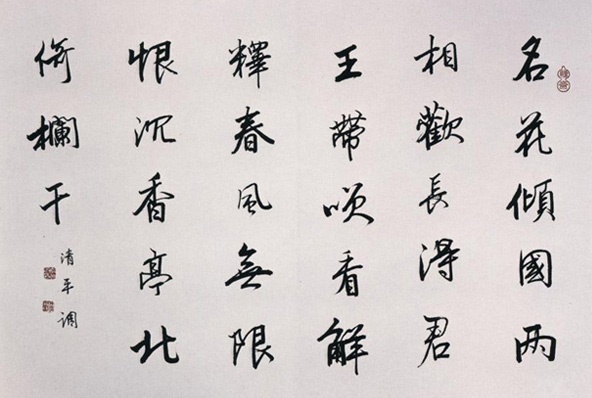 名花傾國两
相歡長得君
王帶㗛看解
釋春風無限
恨沉香亭北
倚欄干
清平调